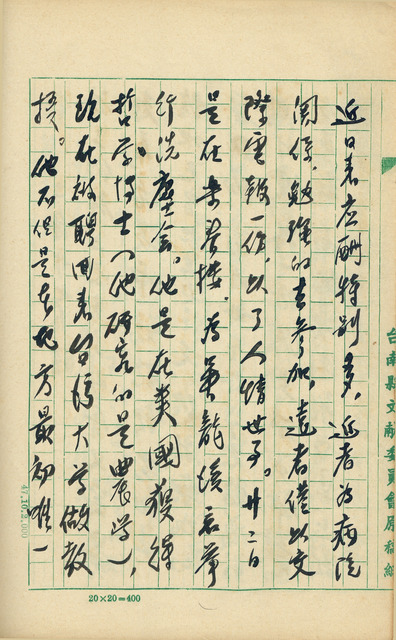 近日來应酬特别多，近者為病院
関係，勉强的去參加，遠者僅以交
際電報一作，以了人情世事。廿二日
是在樂春樓，為吳龍墳君舉
行洗塵会，他是在美國獲得
哲学博士（他研究的是農学），
現在被聘回来台湾大学做教
授。他不但是本地方最初唯一
台南縣文献委員會原稿紙
47.10.2.000
20×20=400